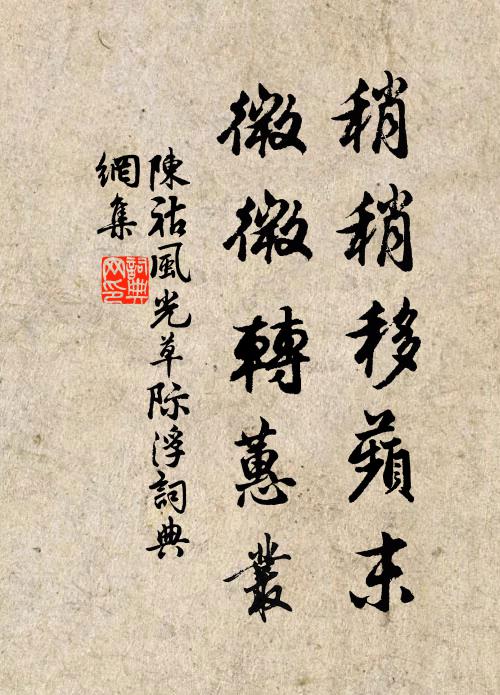 稍稍移蘋末
微微轉蕙叢
陳祐風光草際浮詞典
網集
詞典
網印